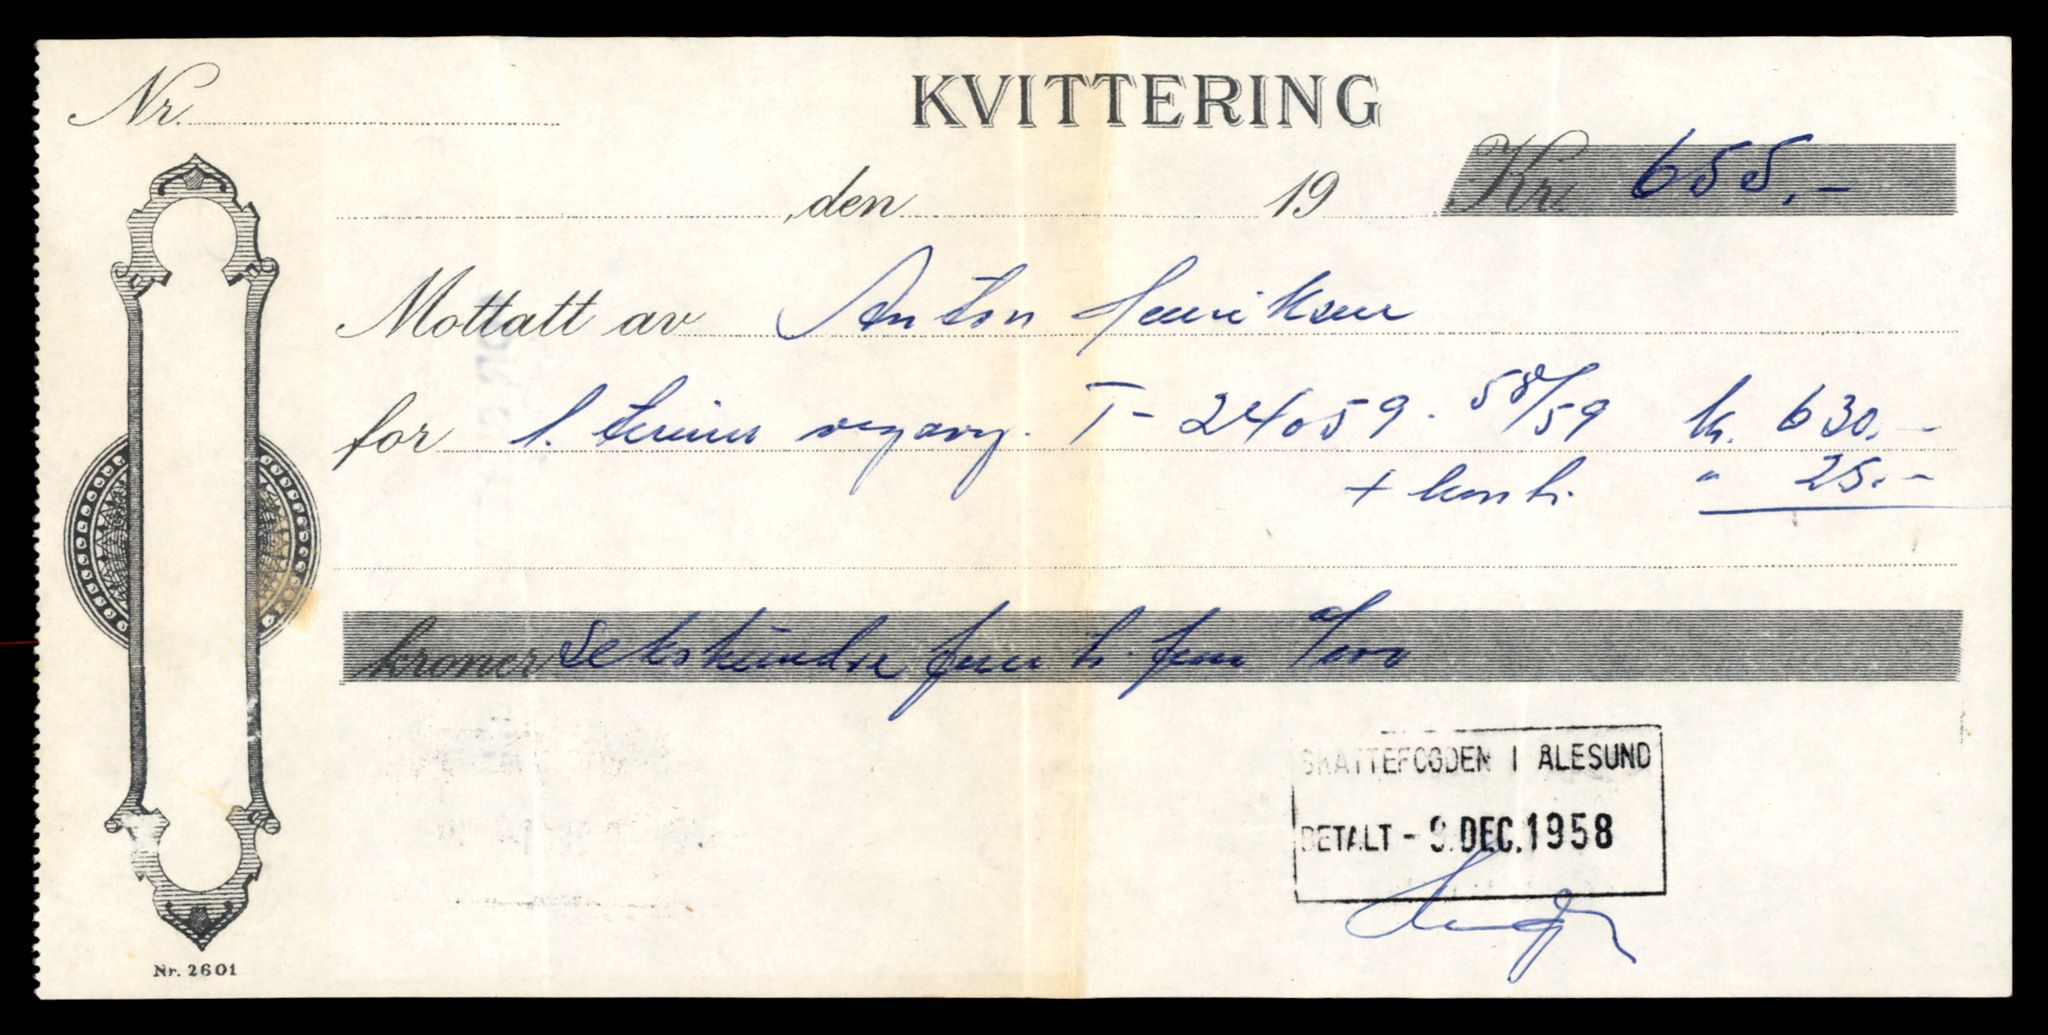 Nr.
KVITTERING
, den 19 Kr. 655.-
Mottatt av Anton Henriksen
for 1. termin vegavg. T- 24059. 58/59 kr. 630.-
+ " 25.-
kroner Sekshundre fem
SKATTEFOGDEN I ÅLESUND
BETALT - 9. DEC. 1958
Nr. 2601